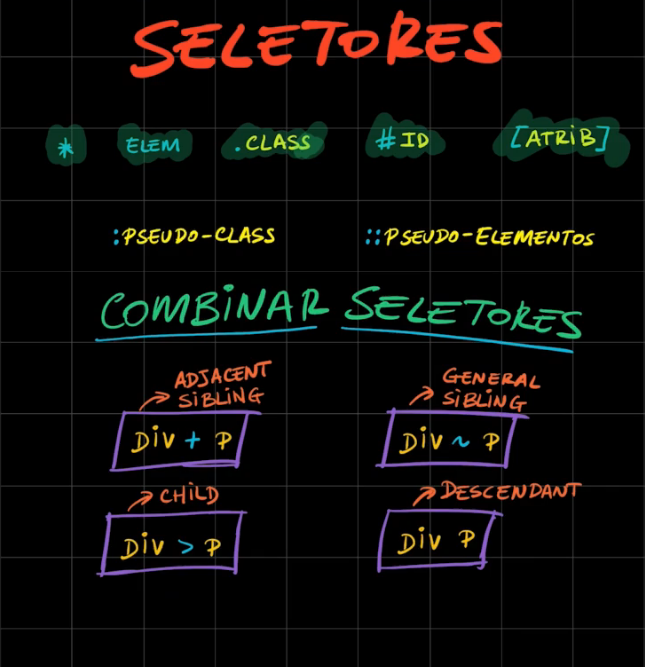 SELETORES
* ELEM .CLASS #ID [ATRIB]
:PSEUDO-CLASS ::PSEUDO-ELEMENTOS
COMBINAR SELETORES
ADJACENT
SIBLING
DIV + P
GENERAL
SIBLING
DIV ~ P
CHILD
DIV > P
DESCENDANT
DIV P